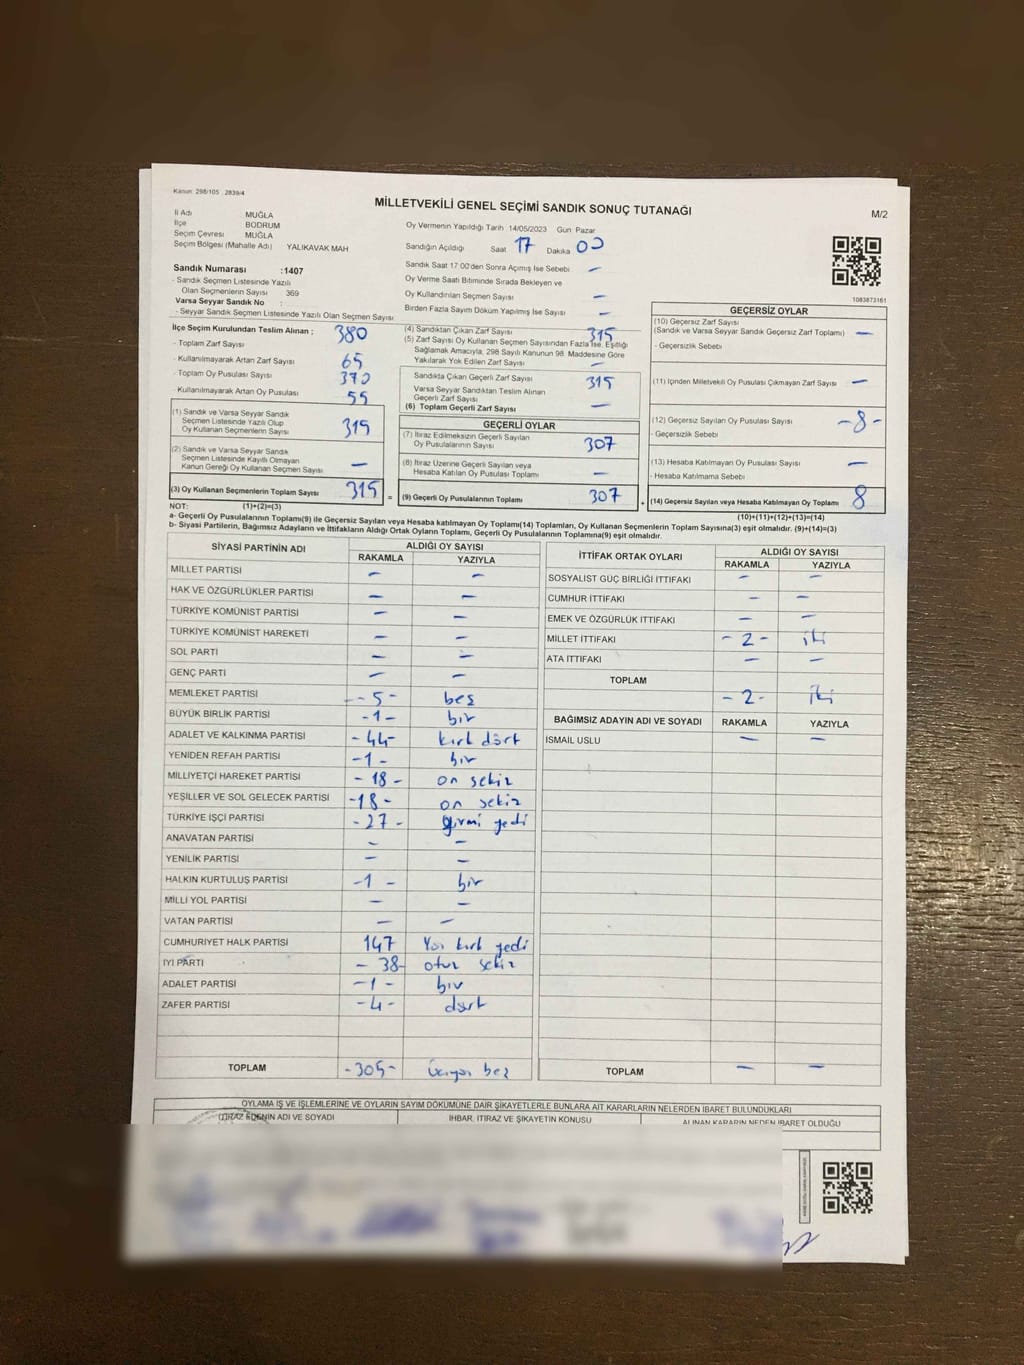 Kanun: 298/105 , 2839/4
MİLLETVEKİLİ GENEL SEÇİMİ SANDIK SONUÇ TUTANAĞI
M/2
İl Adı MUĞLA
İlçe BODRUM
Seçim Çevresi MUĞLA
Seçim Bölgesi (Mahalle Adı) YALIKAVAK MAH
Oy Vermenin Yapıldığı Tarih 14/05/2023 Gün Pazar
Sandığın Açıldığı Saat 17 Dakika 00
Sandık Saat 17:00'den Sonra Açılmış İse Sebebi —
Oy Verme Saati Bitiminde Sırada Bekleyen ve
Oy Kullandırılan Seçmen Sayısı —
Birden Fazla Sayım Döküm Yapılmış İse Sayısı —
1083873161
Sandık Numarası :1407
- Sandık Seçmen Listesinde Yazılı
Olan Seçmenlerin Sayısı 369
Varsa Seyyar Sandık No :
- Seyyar Sandık Seçmen Listesinde Yazılı Olan Seçmen Sayısı
İlçe Seçim Kurulundan Teslim Alınan ;
- Toplam Zarf Sayısı 380
- Kullanılmayarak Artan Zarf Sayısı 65
- Toplam Oy Pusulası Sayısı 370
- Kullanılmayarak Artan Oy Pusulası 55
(1) Sandık ve Varsa Seyyar Sandık
Seçmen Listesinde Yazılı Olup
Oy Kullanan Seçmenlerin Sayısı 315
(2) Sandık ve Varsa Seyyar Sandık
Seçmen Listesinde Kayıtlı Olmayan
Kanun Gereği Oy Kullanan Seçmen Sayısı —
(3) Oy Kullanan Seçmenlerin Toplam Sayısı 315 =
(4) Sandıktan Çıkan Zarf Sayısı 315
(5) Zarf Sayısı Oy Kullanan Seçmen Sayısından Fazla İse, Eşitliği
Sağlamak Amacıyla, 298 Sayılı Kanunun 98. Maddesine Göre
Yakılarak Yok Edilen Zarf Sayısı —
Sandıkta Çıkan Geçerli Zarf Sayısı 315
Varsa Seyyar Sandıktan Teslim Alınan
Geçerli Zarf Sayısı
(6) Toplam Geçerli Zarf Sayısı —
GEÇERLİ OYLAR
(7) İtiraz Edilmeksizin Geçerli Sayılan
Oy Pusulalarının Sayısı 307
(8) İtiraz Üzerine Geçerli Sayılan veya
Hesaba Katılan Oy Pusulası Toplamı —
(9) Geçerli Oy Pusulalarının Toplamı 307 +
GEÇERSİZ OYLAR
(10) Geçersiz Zarf Sayısı
(Sandık ve Varsa Seyyar Sandık Geçersiz Zarf Toplamı) —
- Geçersizlik Sebebi
(11) İçinden Milletvekili Oy Pusulası Çıkmayan Zarf Sayısı —
(12) Geçersiz Sayılan Oy Pusulası Sayısı -8-
- Geçersizlik Sebebi
(13) Hesaba Katılmayan Oy Pusulası Sayısı —
- Hesaba Katılmama Sebebi
(14) Geçersiz Sayılan veya Hesaba Katılmayan Oy Toplamı 8
NOT: (1)+(2)=(3) (10)+(11)+(12)+(13)=(14)
a- Geçerli Oy Pusulalarının Toplamı(9) ile Geçersiz Sayılan veya Hesaba katılmayan Oy Toplamı(14) Toplamları, Oy Kullanan Seçmenlerin Toplam Sayısına(3) eşit olmalıdır. (9)+(14)=(3)
b- Siyasi Partilerin, Bağımsız Adayların ve İttifakların Aldığı Ortak Oyların Toplamı, Geçerli Oy Pusulalarının Toplamına(9) eşit olmalıdır.
SİYASİ PARTİNİN ADI ALDIĞI OY SAYISI
RAKAMLA YAZIYLA
MİLLET PARTİSİ — —
HAK VE ÖZGÜRLÜKLER PARTİSİ — —
TÜRKİYE KOMÜNİST PARTİSİ — —
TÜRKİYE KOMÜNİST HAREKETİ — —
SOL PARTİ — —
GENÇ PARTİ — —
MEMLEKET PARTİSİ -5- beş
BÜYÜK BİRLİK PARTİSİ -1- bir
ADALET VE KALKINMA PARTİSİ -44- kırk dört
YENİDEN REFAH PARTİSİ -1- bir
MİLLİYETÇİ HAREKET PARTİSİ -18- on sekiz
YEŞİLLER VE SOL GELECEK PARTİSİ -18- on sekiz
TÜRKİYE İŞÇİ PARTİSİ -27- yirmi yedi
ANAVATAN PARTİSİ — —
YENİLİK PARTİSİ — —
HALKIN KURTULUŞ PARTİSİ -1- bir
MİLLİ YOL PARTİSİ — —
VATAN PARTİSİ — —
CUMHURİYET HALK PARTİSİ 147 Yüz kırk yedi
İYİ PARTİ -38- otuz sekiz
ADALET PARTİSİ -1- bir
ZAFER PARTİSİ -4- dört
TOPLAM -305- Üçyüz beş
İTTİFAK ORTAK OYLARI ALDIĞI OY SAYISI
RAKAMLA YAZIYLA
SOSYALİST GÜÇ BİRLİĞİ İTTİFAKI — —
CUMHUR İTTİFAKI — —
EMEK VE ÖZGÜRLÜK İTTİFAKI — —
MİLLET İTTİFAKI -2- iki
ATA İTTİFAKI — —
TOPLAM -2- iki
BAĞIMSIZ ADAYIN ADI VE SOYADI RAKAMLA YAZIYLA
İSMAİL USLU — —
TOPLAM — —
OYLAMA İŞ VE İŞLEMLERİNE VE OYLARIN SAYIM DÖKÜMÜNE DAİR ŞİKAYETLERLE BUNLARA AİT KARARLARIN NELERDEN İBARET BULUNDUKLARI
İTİRAZ EDENİN ADI VE SOYADI İHBAR, İTİRAZ VE ŞİKAYETİN KONUSU ALINAN KARARIN NEDEN İBARET OLDUĞU